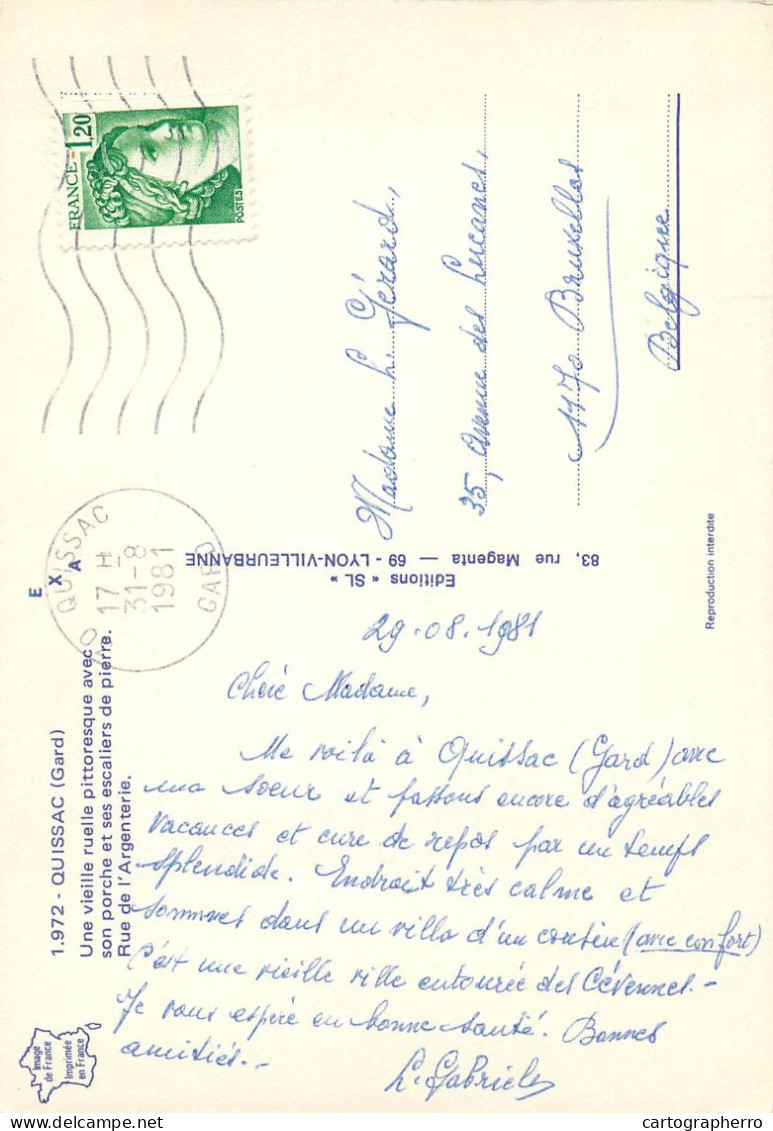 1.972 - QUISSAC (Gard)
Une vieille ruelle pittoresque avec
son porche et ses escaliers de pierre.
Rue de l'Argenterie.
E
X
A
FRANCE-1,20
POSTES
QUISSAC
17 H
31-8
1981
GARD
29.08.1981
Chère Madame,
Me voilà à Quissac (Gard) avec
ma soeur et passons encore d'agréables
vacances et cure de repos par un temps
splendide. Endroit très calme et
sommes dans un villa d'un cousin (avec confort)
C'est une vieille ville entourée des Cévennes.-
Je vous espère en bonne santé. Bonnes
amitiés.-
L. Gabriels
Editions « SL »
83, rue Magenta — 69 - LYON-VILLEURBANNE
Madame L. Gérard,
35, Avenue des Lucanes,
1170 Bruxelles
Belgique
Reproduction interdite
Image
de France
Imprimée
en France
cartographerro